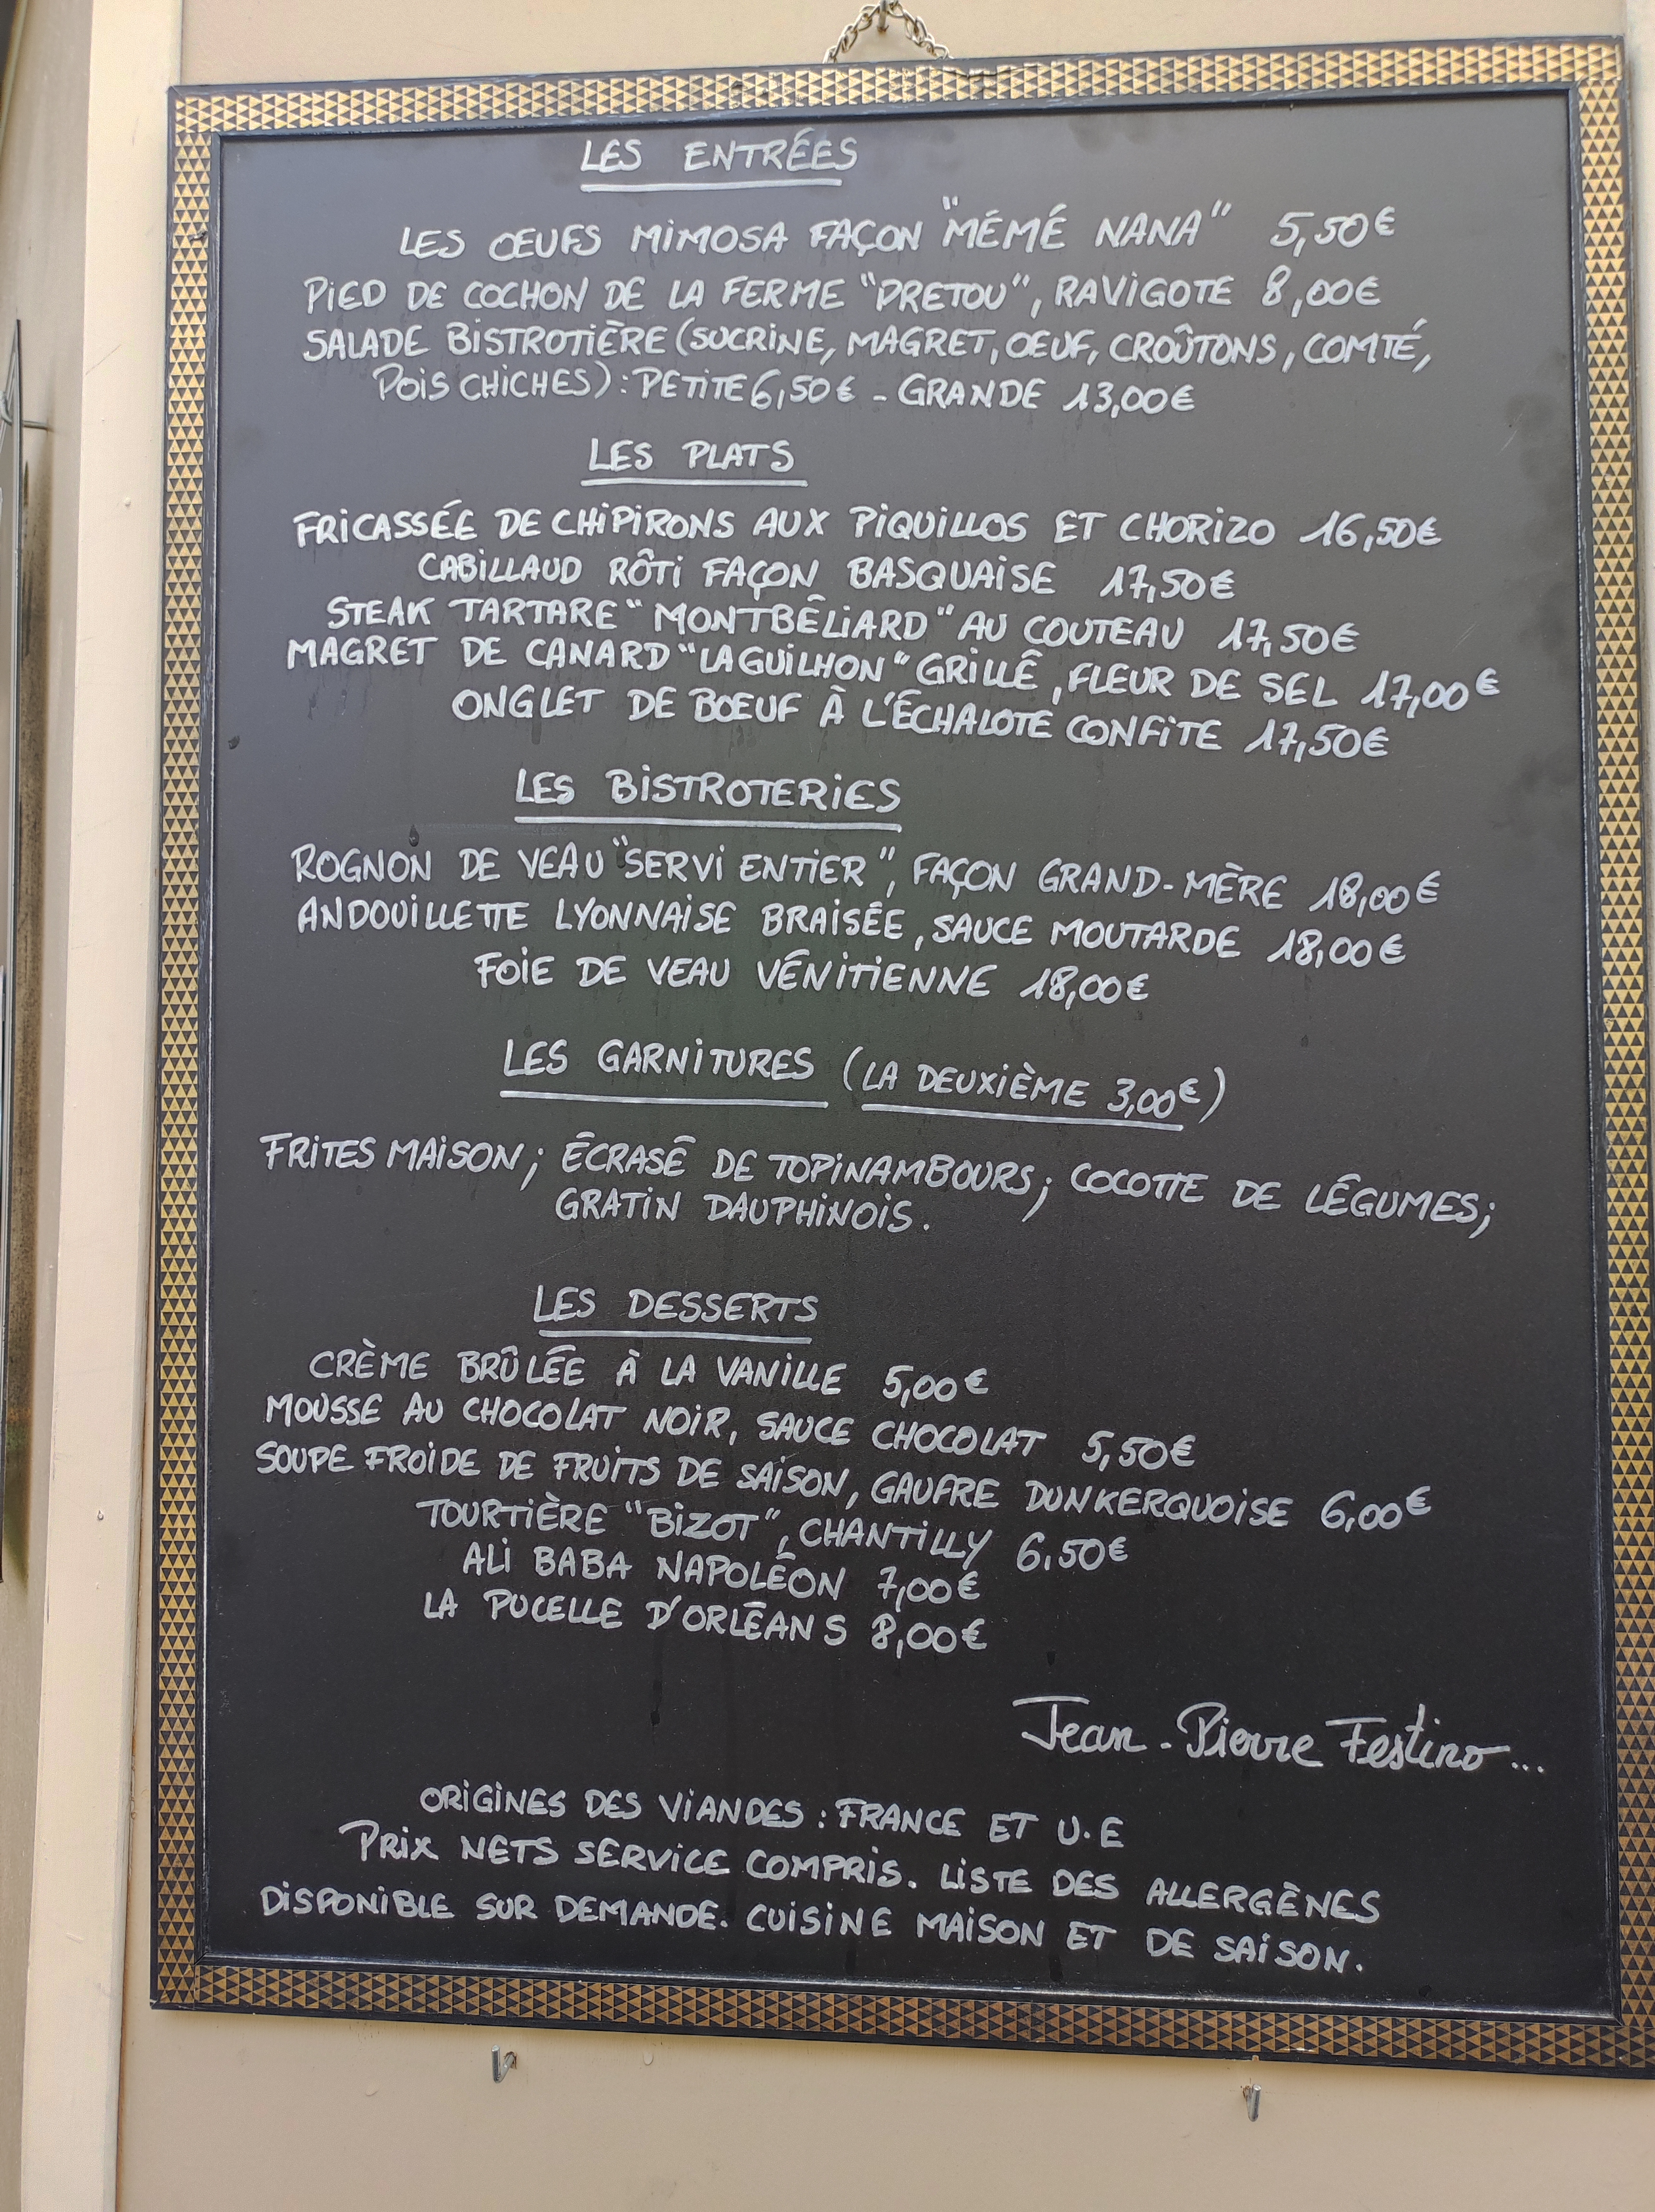 LES ENTRÉES
LES ŒUFS MIMOSA FAÇON "MÉMÉ NANA" 5,50€
PIED DE COCHON DE LA FERME "PRETOU", RAVIGOTE 8,00€
SALADE BISTROTIÈRE (SUCRINE, MAGRET, OEUF, CROÛTONS, COMTÉ,
POIS CHICHES) : PETITE 6,50€ - GRANDE 13,00€
LES PLATS
FRICASSÉE DE CHIPIRONS AUX PIQUILLOS ET CHORIZO 16,50€
CABILLAUD RÔTI FAÇON BASQUAISE 17,50€
STEAK TARTARE "MONTBÉLIARD" AU COUTEAU 17,50€
MAGRET DE CANARD "LAGUILHON" GRILLÉ, FLEUR DE SEL 17,00€
ONGLET DE BOEUF À L'ÉCHALOTE CONFITE 17,50€
LES BISTROTERIES
ROGNON DE VEAU "SERVI ENTIER", FAÇON GRAND-MÈRE 18,00€
ANDOUILLETTE LYONNAISE BRAISÉE, SAUCE MOUTARDE 18,00€
FOIE DE VEAU VÉNITIENNE 18,00€
LES GARNITURES (LA DEUXIÈME 3,00€)
FRITES MAISON; ÉCRASÉ DE TOPINAMBOURS; COCOTTE DE LÉGUMES;
GRATIN DAUPHINOIS.
LES DESSERTS
CRÈME BRÛLÉE À LA VANILLE 5,00€
MOUSSE AU CHOCOLAT NOIR, SAUCE CHOCOLAT 5,50€
SOUPE FROIDE DE FRUITS DE SAISON, GAUFRE DUNKERQUOISE 6,00€
TOURTIÈRE "BIZOT", CHANTILLY 6,50€
ALI BABA NAPOLÉON 7,00€
LA PUCELLE D'ORLÉANS 8,00€
Jean-Pierre Festino...
ORIGINES DES VIANDES : FRANCE ET U.E
PRIX NETS SERVICE COMPRIS. LISTE DES ALLERGÈNES
DISPONIBLE SUR DEMANDE. CUISINE MAISON ET DE SAISON.